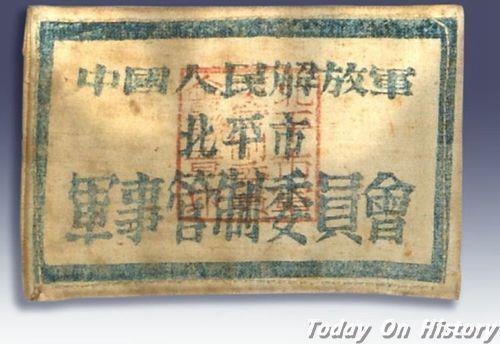 中國人民解放軍
北平市
軍事管制委員會
Today On History